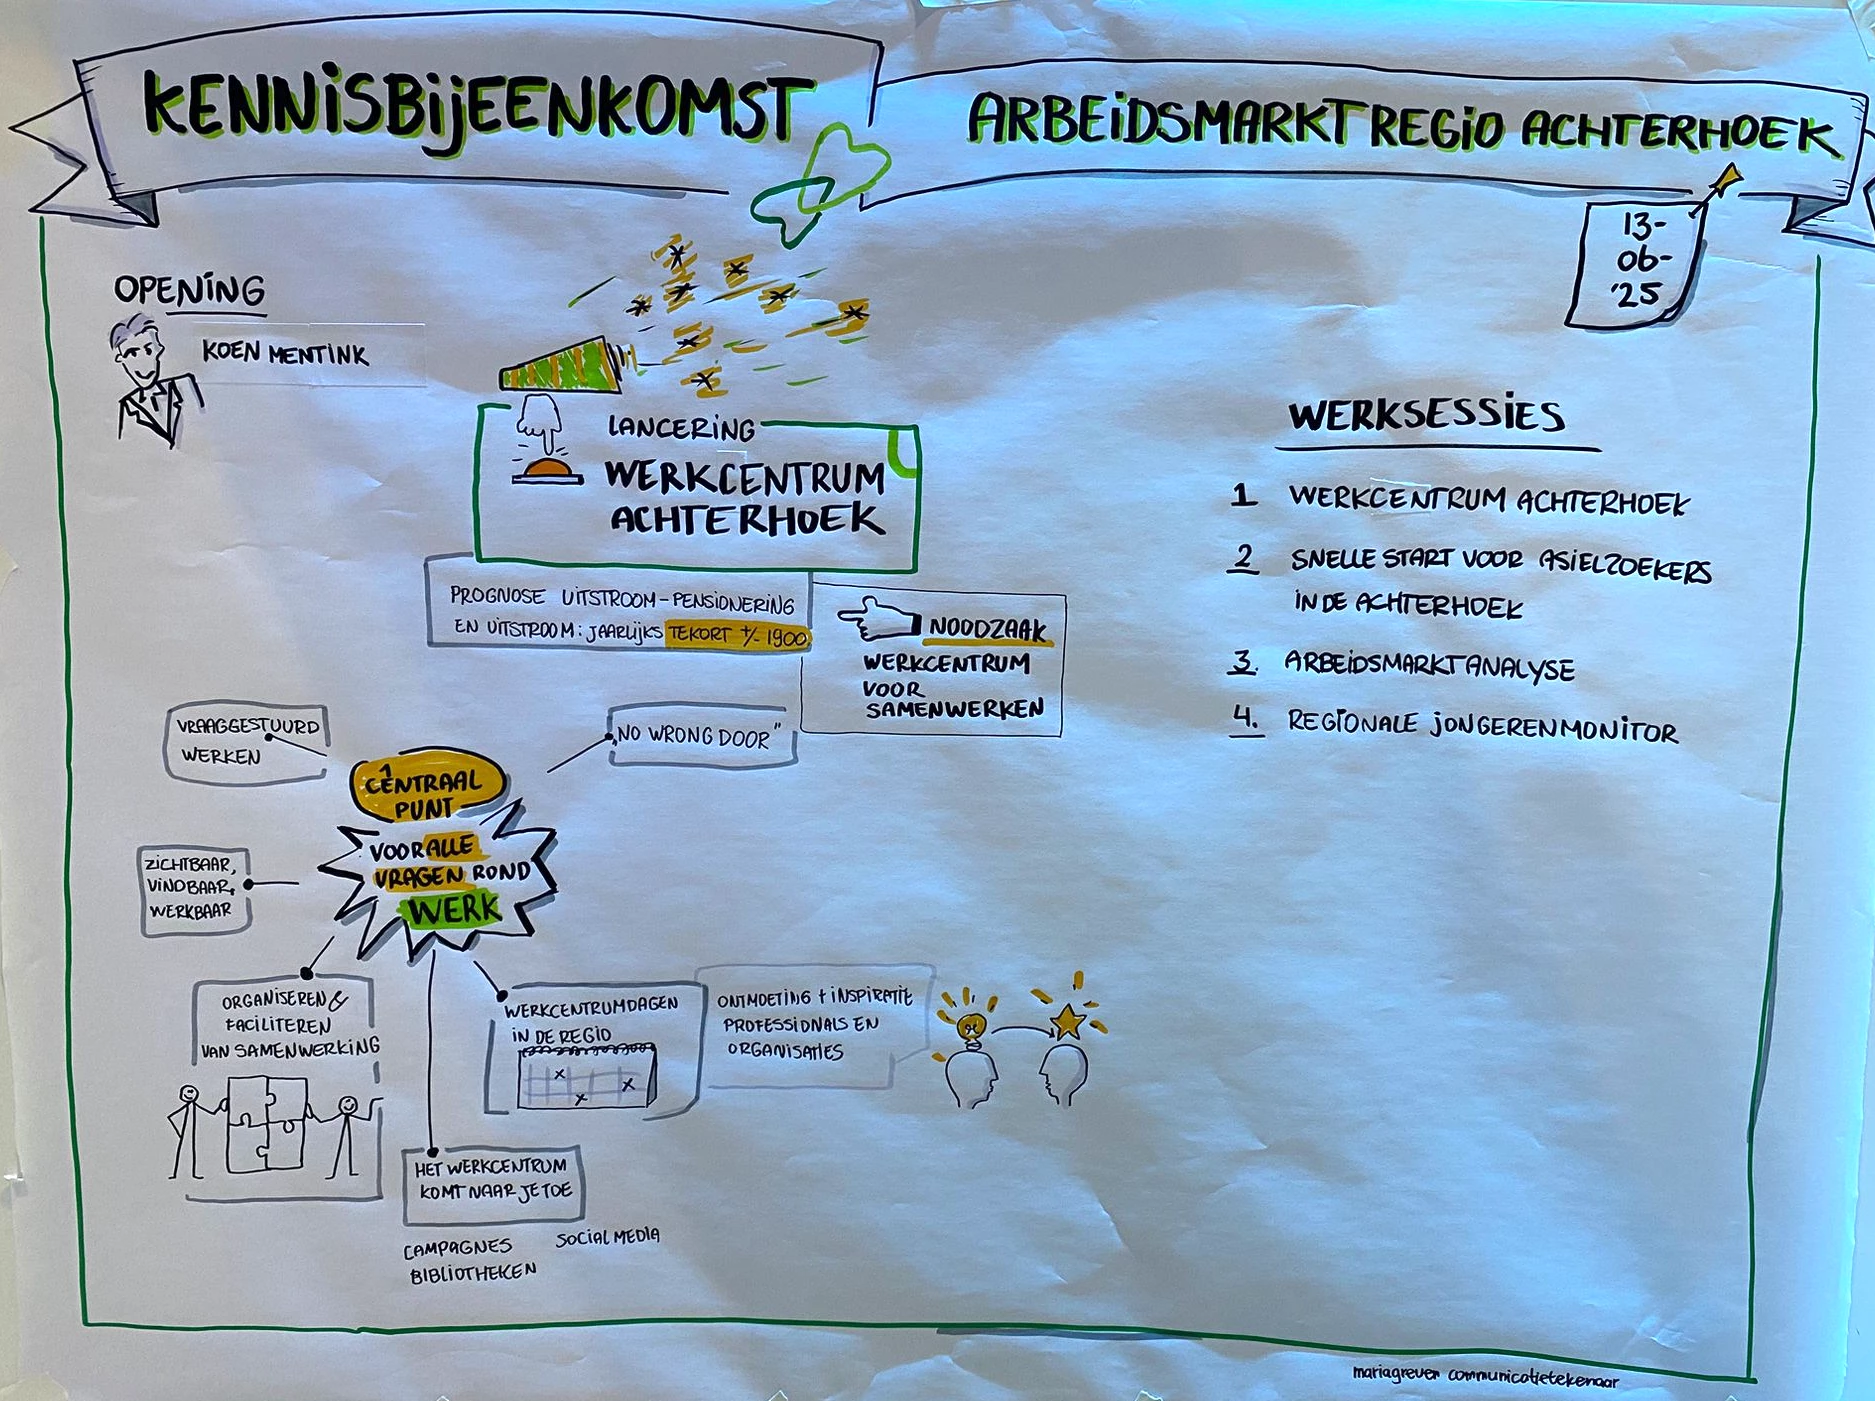 KENNISBIJEENKOMST
ARBEIDSMARKTREGIO ACHTERHOEK
13-
06-
'25
OPENING
KOEN MENTINK
LANCERING
WERKCENTRUM
ACHTERHOEK
PROGNOSE UITSTROOM-PENSIONERING
EN UITSTROOM: JAARLIJKS TEKORT +/- 1900
NOODZAAK
WERKCENTRUM
VOOR
SAMENWERKEN
WERKSESSIES
1 WERKCENTRUM ACHTERHOEK
2 SNELLE START VOOR ASIELZOEKERS
IN DE ACHTERHOEK
3. ARBEIDSMARKTANALYSE
4. REGIONALE JONGERENMONITOR
VRAAGGESTUURD
WERKEN
„NO WRONG DOOR"
1
CENTRAAL
PUNT
VOOR ALLE
VRAGEN ROND
WERK
ZICHTBAAR,
VINDBAAR,
WERKBAAR
ORGANISEREN &
FACILITEREN
VAN SAMENWERKING
WERKCENTRUMDAGEN
IN DE REGIO
ONTMOETING + INSPIRATIE
PROFESSIONALS EN
ORGANISATIES
HET WERKCENTRUM
KOMT NAAR JE TOE
CAMPAGNES
SOCIAL MEDIA
BIBLIOTHEKEN
mariagrever communicatietekenaar